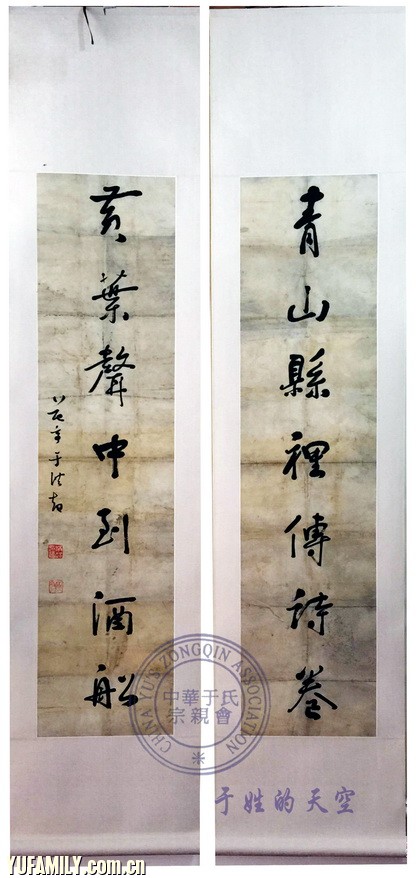 青山縣裡傳詩卷
黃葉聲中到酒船
CHINA YU'S ZONGQIN ASSOCIATION
中華于氏
宗親會
于姓的天空
YUFAMILY.com.cn